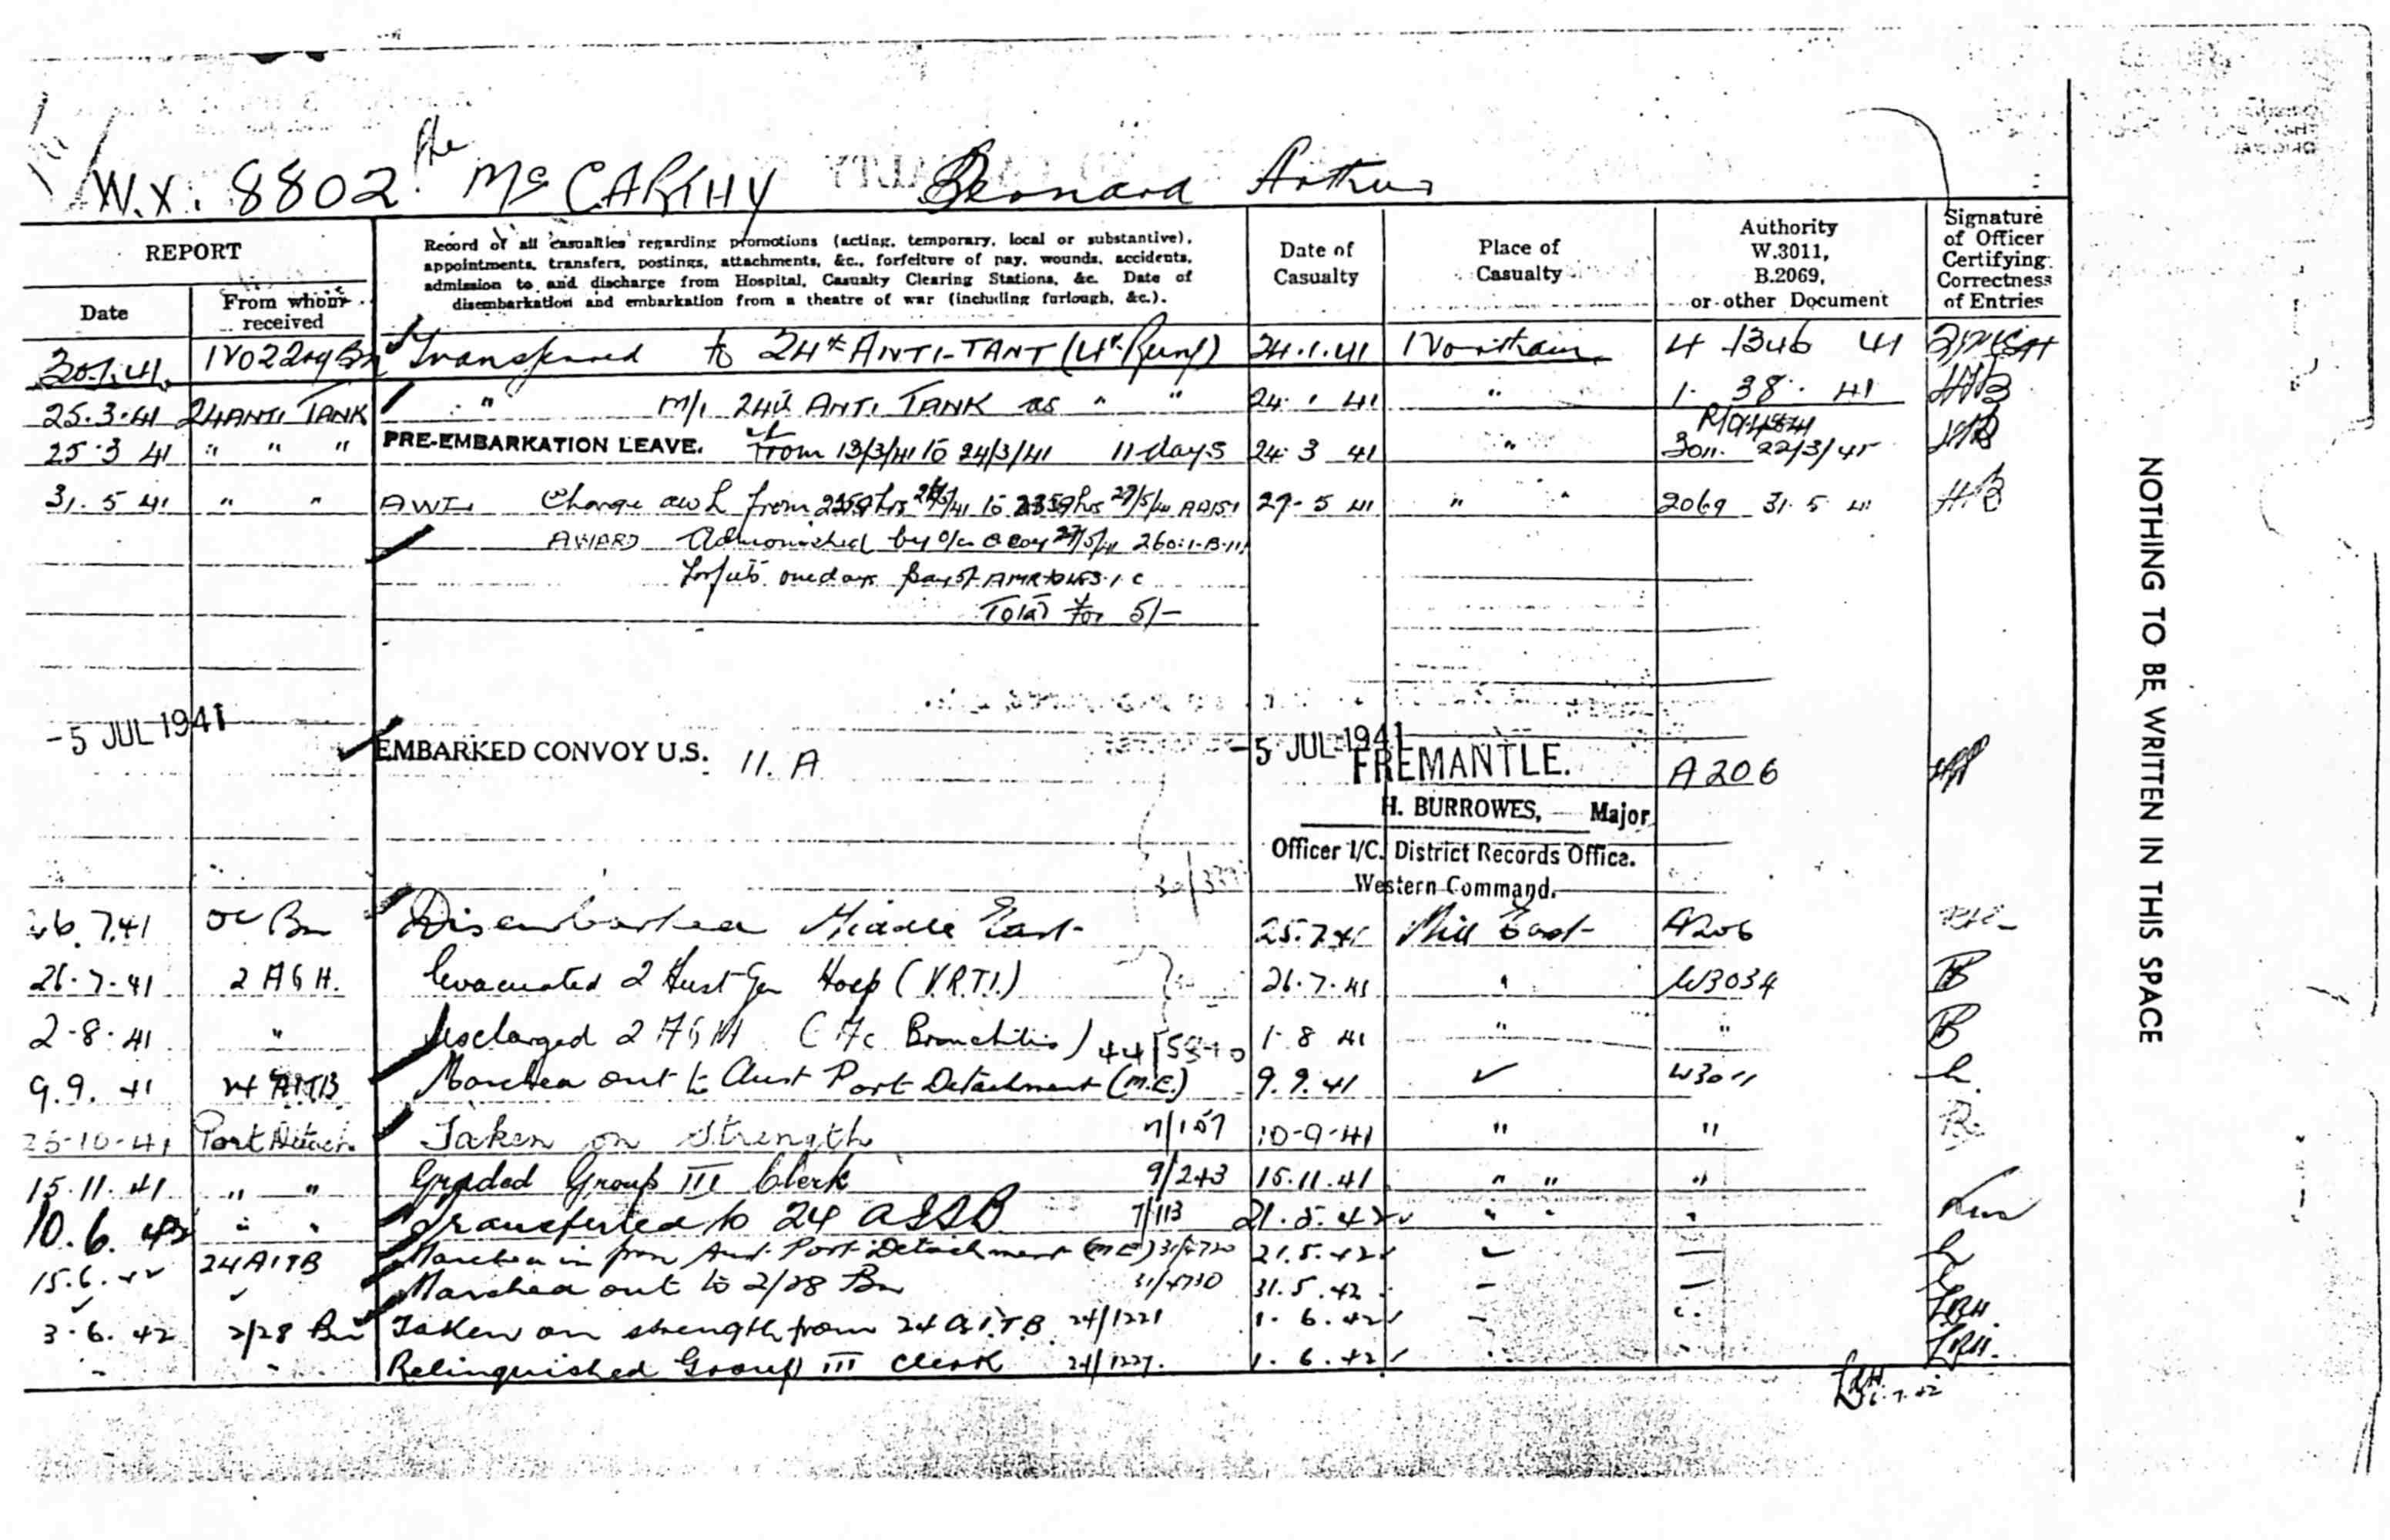 W.X. 8802 Pte McCARTHY Bernard Arthur
REPORT
Date
From whom received
Record of all casualties regarding promotions (acting, temporary, local or substantive),
appointments, transfers, postings, attachments, &c., forfeiture of pay, wounds, accidents,
admission to and discharge from Hospital, Casualty Clearing Stations, &c. Date of
disembarkation and embarkation from a theatre of war (including furlough, &c.).
Date of Casualty
Place of Casualty
Authority W.3011, B.2069, or other Document
Signature of Officer Certifying Correctness of Entries
30.1.41 Transferred to 24th ANTI-TANT 24.1.41 Northam 4 1346 41
25.3.41 24 ANTI TANK " M/I 24th ANTI TANK as " " 24 1 41 " 1 38 41 HB
25.3 41 " " " PRE-EMBARKATION LEAVE. From 13/3/41 to 24/3/41 11 days 24 3 41 " 3011
31. 5 41 " " AWL Charge awL from 2359 hrs to 2359 hrs 27/5/41 27-5 41 " " 2069 31. 5 41 HB
AWARD Admonished by 27/5/41
Forfeits one days pay
Total For 5/-
-5 JUL 1941 EMBARKED CONVOY U.S. 11. A -5 JUL 1941 FREMANTLE. A206
H. BURROWES, Major
Officer I/C. District Records Office.
Western Command.
26.7.41 OC Bn Disembarked Middle East 25.7.41 Mid East A206
26.7.41 2 AGH. Evacuated 2 Aust Gen Hosp (V.R.T.I.) 26.7.41 " W3034 B
2-8-41 " Discharged 2 AGH (Ac Bronchitis) 1-8 41 " " B
9.9.41 24 AITB Marched out to Aust Port Detachment (M.E.) 9.9.41 W3011
25-10-41 Port Detach. Taken on Strength 7/157 10-9-41 " " B
15.11.41 " " Graded Group III Clerk 9/243 15.11.41 " " "
10.6.42 " " Transferred to 24 7/113 21.5.42 " " "
15.6.42 24 AITB Marched in from Aust Port Detachment (ME) 21.5.42
Marched out to 2/28 Bn 31.5.42
3.6.42 2/28 Bn Taken on strength from 24 A.I.T.B. 24/1221 1.6.42
Relinquished Group III Clerk 24/1227. 1.6.42
NOTHING TO BE WRITTEN IN THIS SPACE